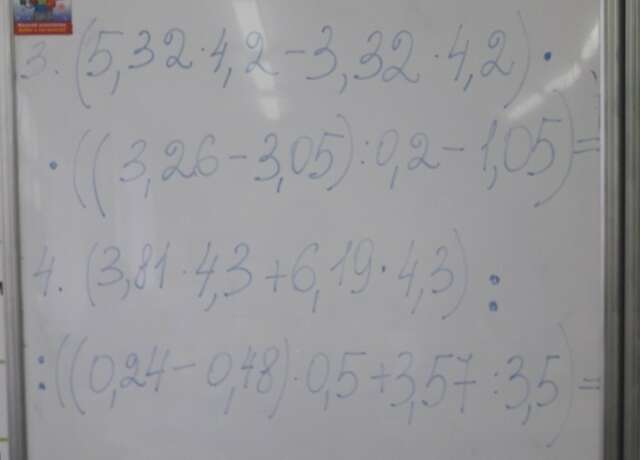 3. (5,32·4,2-3,32·4,2)·
·((3,26-3,05):0,2-1,05)=
4. (3,81·4,3+6,19·4,3):
:((0,24-0,48)·0,5+3,57:3,5)=